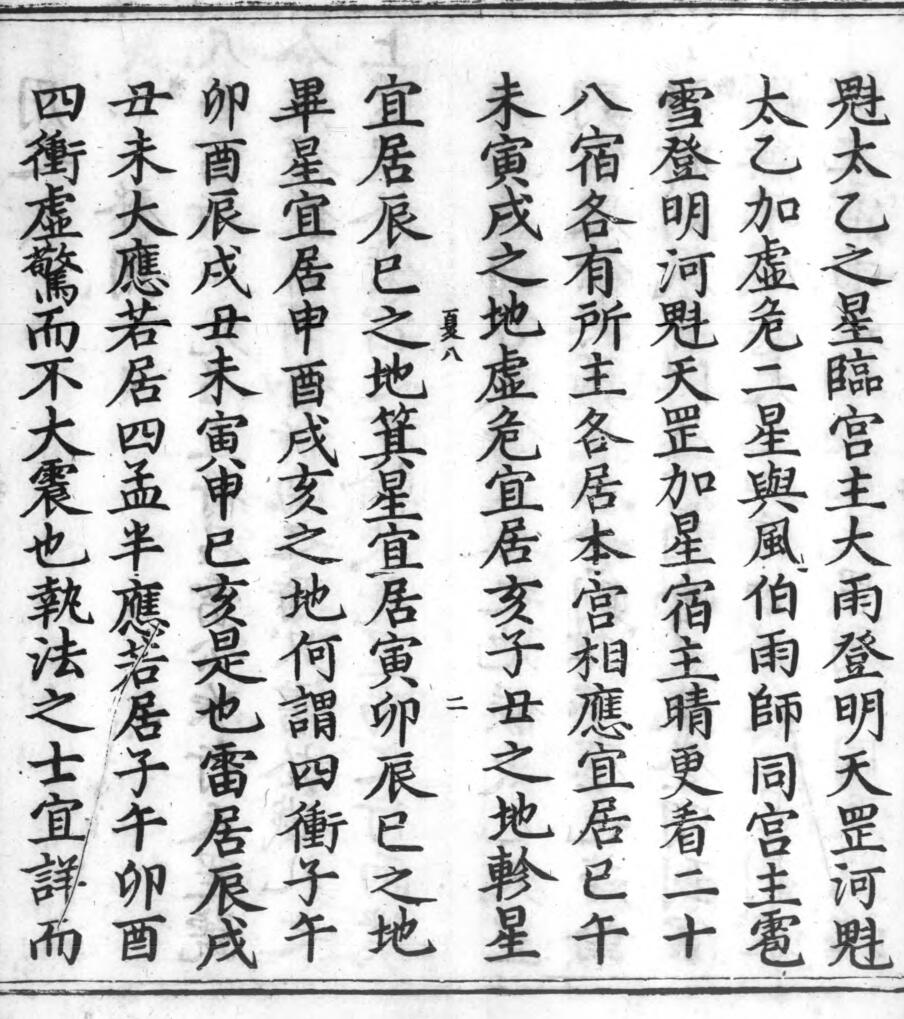 魁太乙之星臨宫主大雨登明天罡河魁
太乙加虛危二星與風伯雨師同宫主雹
雪登明河魁天罡加星宿主晴更看二十
八宿各有所主各居本宫相應宜居巳午
未寅戌之地虛危宜居亥子丑之地軫星
夏八
二
宜居辰巳之地箕星宜居寅卯辰巳之地
畢星宜居申酉戌亥之地何謂四衝子午
卯酉辰戌丑未寅申巳亥是也雷居辰戌
丑未大應若居四孟半應若居子午卯酉
四衝虛驚而不大震也執法之士宜詳而